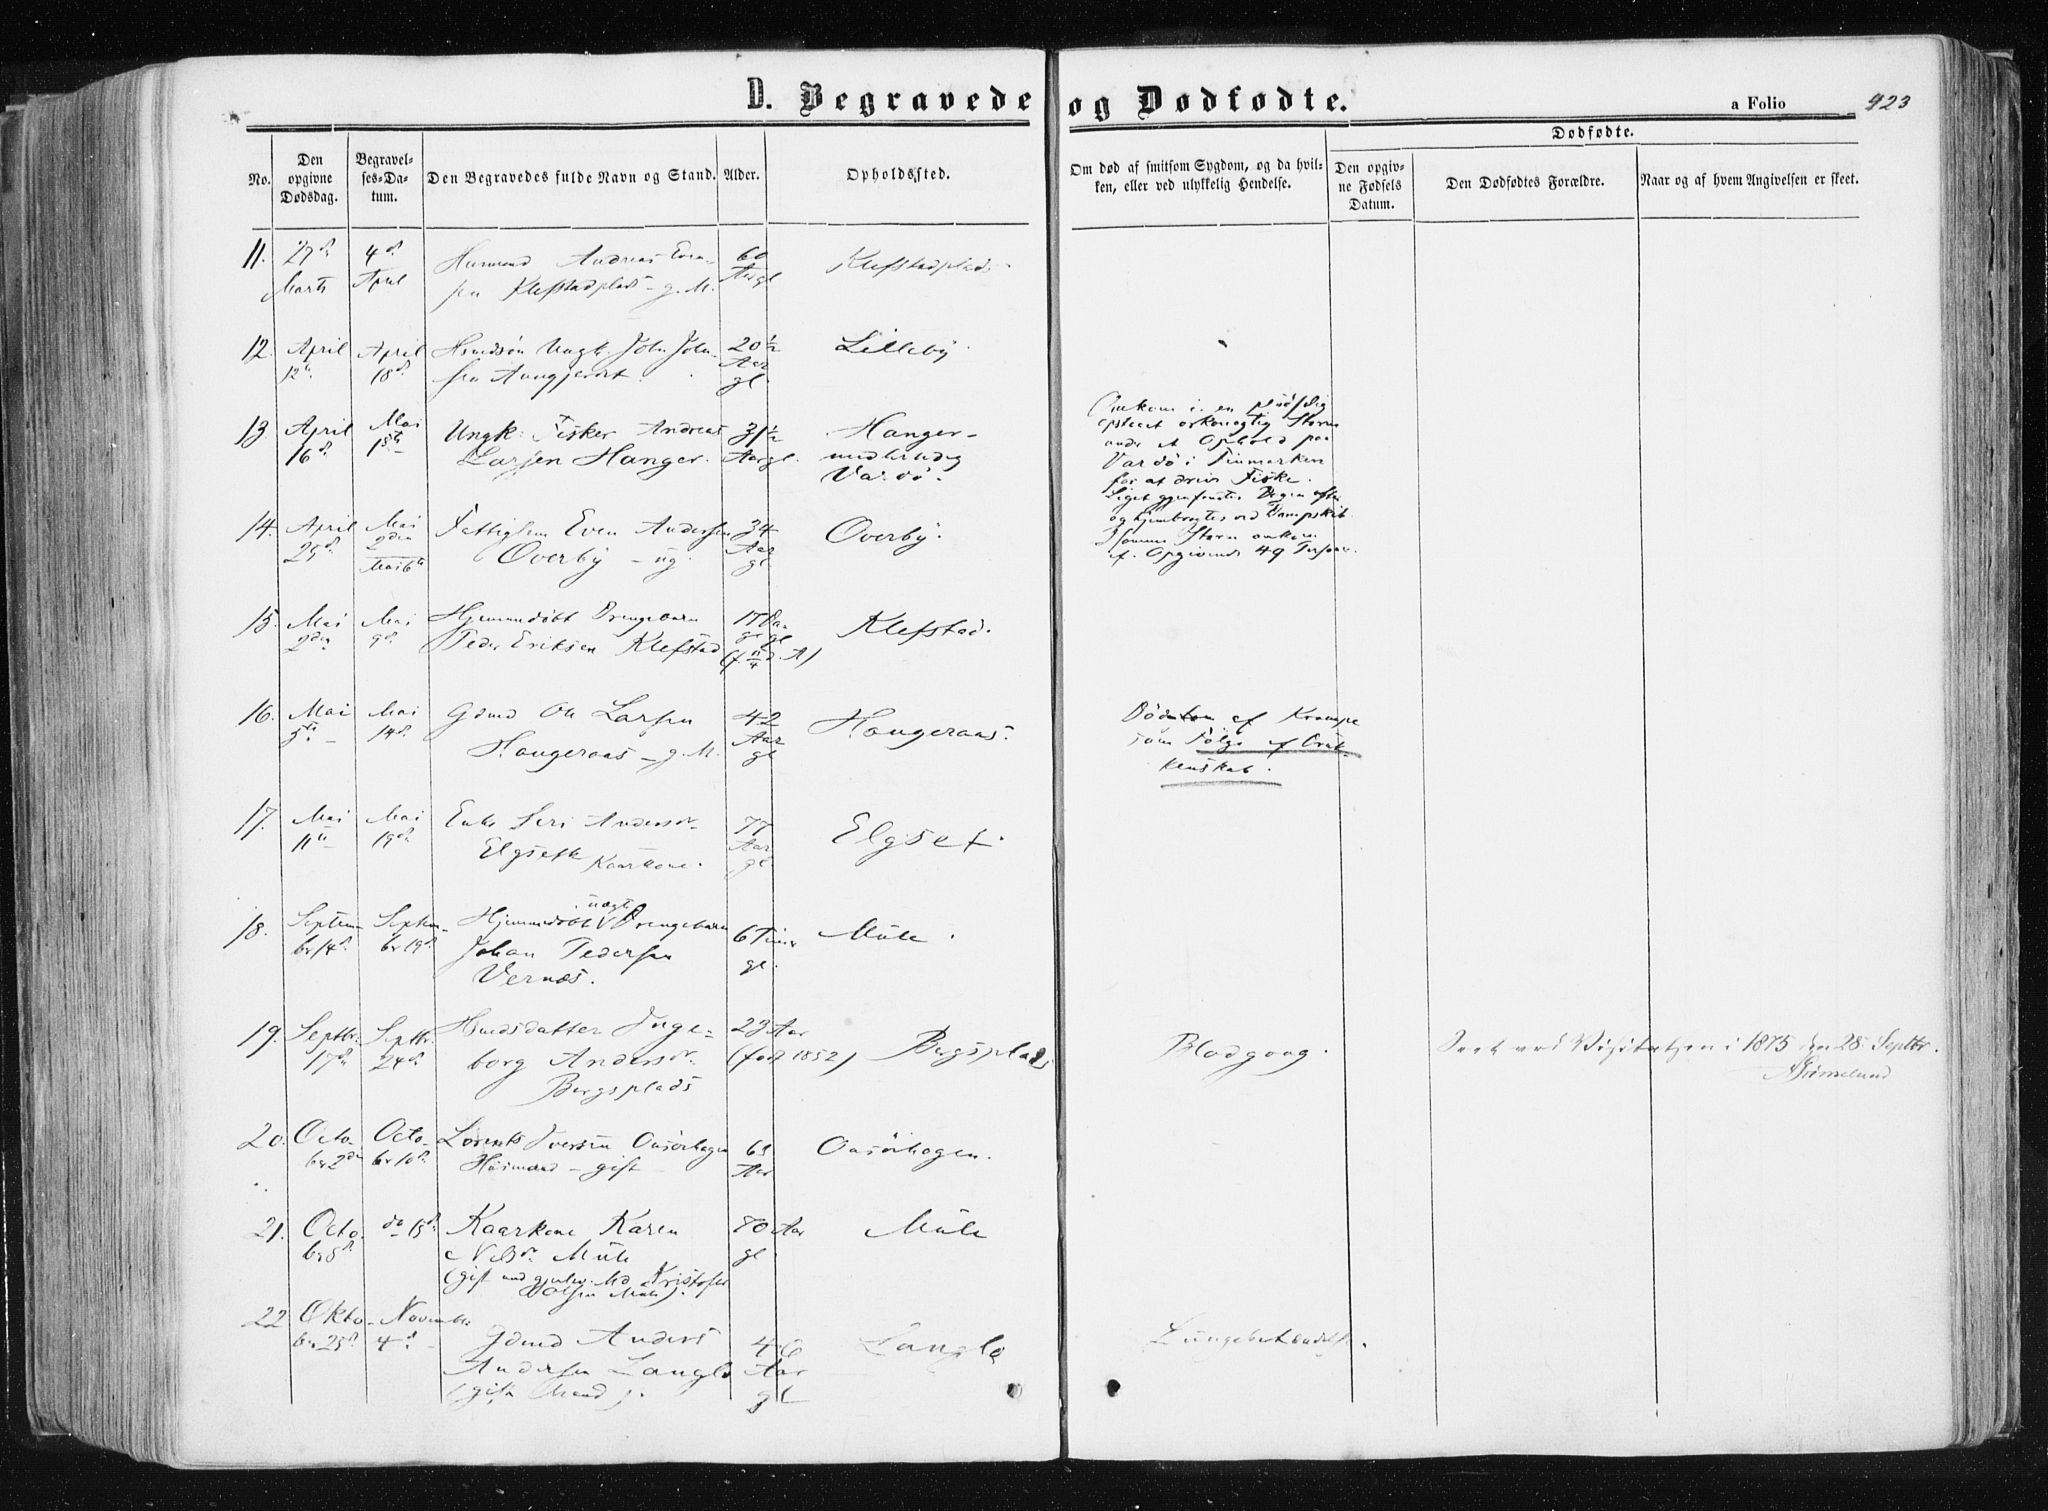 D. Begravede og Dødfødte.
a Folio 423
Dødfødte.
No.
Den opgivne Dødsdag.
Begravelses-Datum.
Den Begravedes fulde Navn og Stand.
Alder.
Opholdssted.
Om død af smitsom Sygdom, og da hvilken, eller ved ulykkelig Hendelse.
Den opgivne Fødsels Datum.
Den Dødfødtes Forældre.
Naar og af hvem Angivelsen er skeet.
11. 27d Marts
4d April
Husmand Andreas
Klefstadplads g. M.
60 Aar gl
Klefstadplads
12. April 12te
April 18d
Ungk. John John-
sen Aungjerdet.
20 ½ Aar gl.
Lilleby
13 April 16d
Mai 15te
Ungk: Fisker Andreas
Larsen Hanger.
31 ½ Aar gl.
Hanger-
Vardö.
Omkom i en plüdselig
opstaaet orkanagtig Storm
under et Ophold paa
Vardö i Finmarken
for at drive Fiske.
Liget gjenfandtes Dagen efter
og hjembragtes ved Dampskib.
I samme Storm omkom
ef. Opgivende 49 Personer.
14. April 25d
Mai 2den
Mai 6te
Fattiglem Even Andersen
Overby - ug.
34 Aar gl
Overby.
15. Mai 2den
Mai 9d
Hjemmedöbt Drengebarn
Peder Eriksen Klefstad
17 Da-
ge gl
Klefstad.
16. Mai 5te
Mai 14d
Gdmd Ole Larsen
Haugeraas - g. M.
42 Aar gl
Haugeraas.
Döde af Krampe
som Fölge af Drik-
kenskab.
17. Mai 11te
Mai 19d
Enke Seri Andersdr.
Elgseth Kaarkone.
77 Aar gl
Elgset.
18. Septem-
ber 14d
Septem-
ber 19d
Hjemmedöbt uægte Drengebarn
Johan Pedersen
Vernæs.
6 Timer gl.
Mule.
19. Septbr. 17d
Septbr. 24d
Husmdsdatter Inge-
borg Andersdr.
Bergsplads
23 Aar
(född 1852)
Bergsplads
Blodgang.
Seet ved Visitatsen i 1875 den 28 Septbr.
Grimelund
20. Octo-
ber 2den
Octo-
ber 10d
Lorents Iversen Ousörhagen
Husmand - gift
63 Aar
Ousörhagen.
21. Octo-
ber 8d
do 15d
Kaarkone Karen
Nelsdr. Mule
(gift med gjenlev. Md Kristofer
Olsen Mule).
80 Aar gl
Mule
22 Okto-
ber 25d
November
4d
Gdmd Anders
Andersen Langlo
(gift Mand).
46 Aar gl
Langlo
Lungebetændelse.